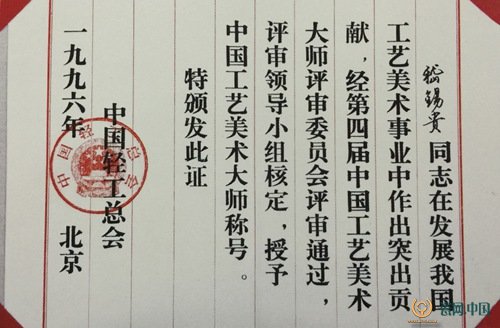 嵇锡贵同志在发展我国
工艺美术事业中作出突出贡
献,经第四届中国工艺美术
大师评审委员会评审通过,
评审领导小组核定,授予
中国工艺美术大师称号。
特颁发此证
中国轻工总会
一九九六年 北京
中国轻工总会
瓷网·中国